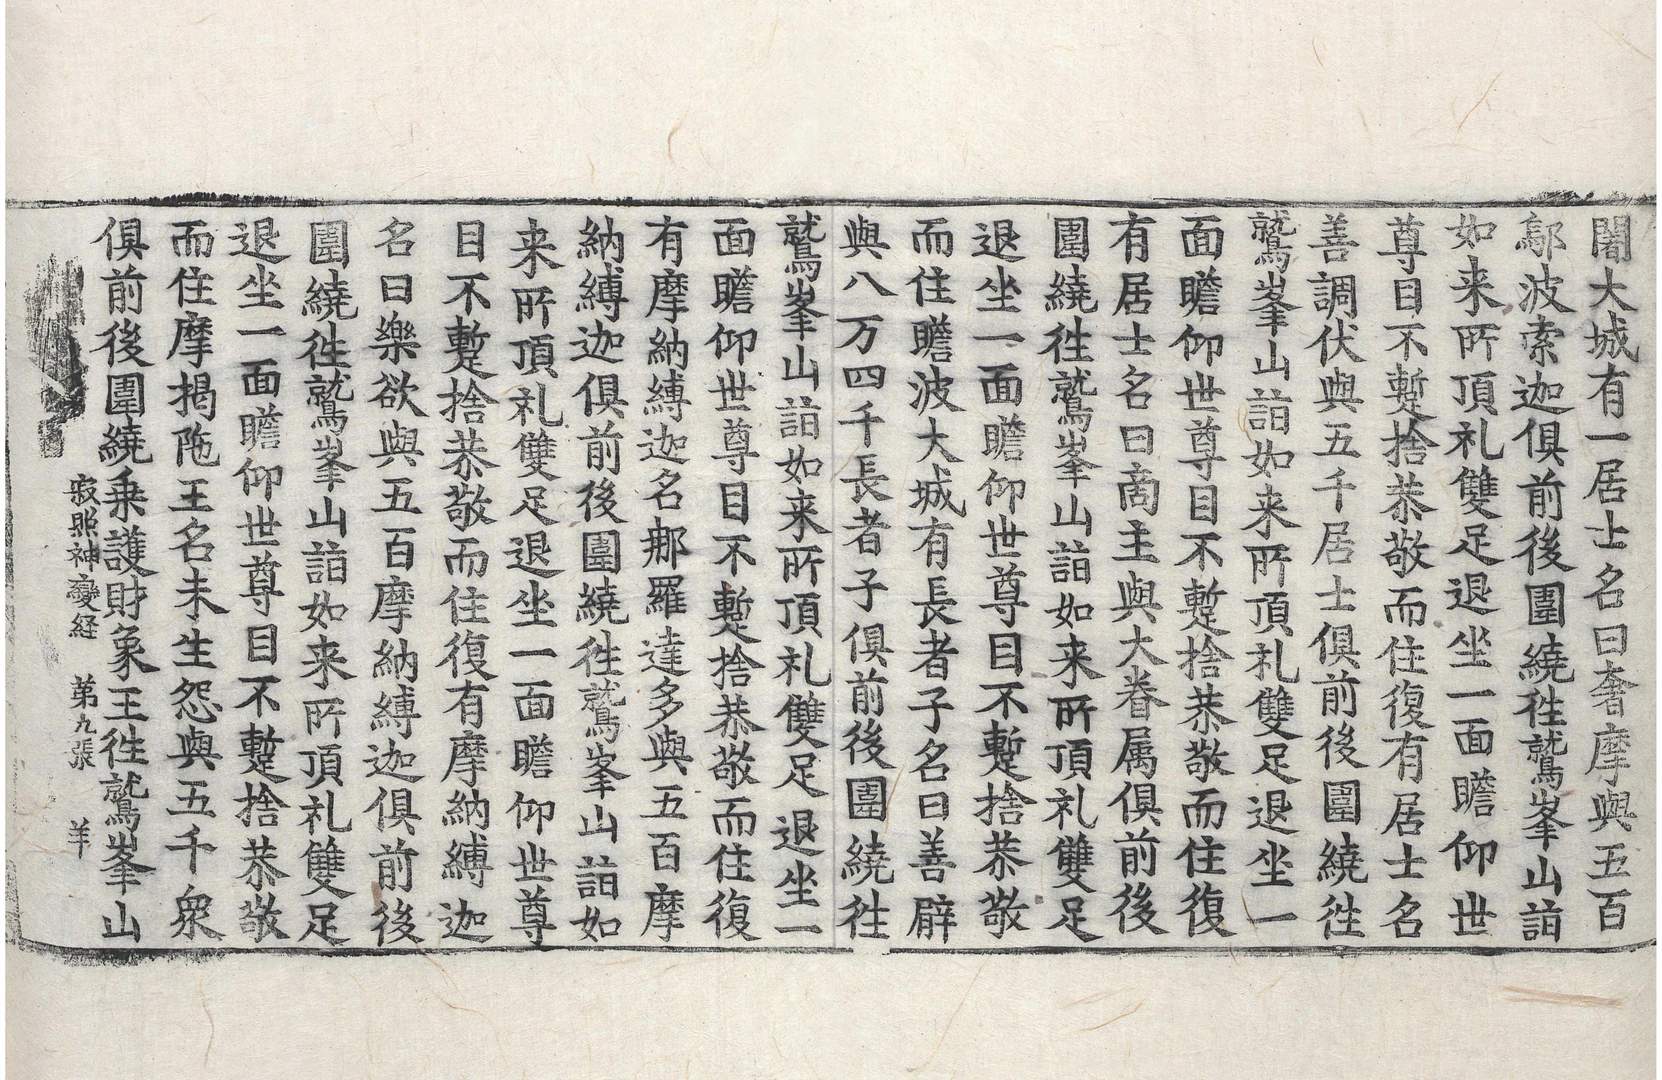 闍大城有一居士名曰奢摩與五百
鄔波索迦俱前後圍繞徃鷲峯山詣
如来所頂礼雙足退坐一面瞻仰世
尊目不蹔捨恭敬而住復有居士名
善調伏與五千居士俱前後圍繞徃
鷲峯山詣如来所頂礼雙足退坐一
面瞻仰世尊目不蹔捨恭敬而住復
有居士名曰啇主與大眷属俱前後
圍繞徃鷲峯山詣如来所頂礼雙足
退坐一面瞻仰世尊目不蹔捨恭敬
而住瞻波大城有長者子名曰善辟
與八万四千長者子俱前後圍繞徃
鷲峯山詣如来所頂礼雙足退坐一
面瞻仰世尊目不蹔捨恭敬而住復
有摩納縛迦名那羅達多與五百摩
納縛迦俱前後圍繞徃鷲峯山詣如
来所頂礼雙足退坐一面瞻仰世尊
目不蹔捨恭敬而住復有摩納縛迦
名曰樂欲與五百摩納縛迦俱前後
圍繞徃鷲峯山詣如来所頂礼雙足
退坐一面瞻仰世尊目不蹔捨恭敬
而住摩揭陁王名未生怨與五千衆
俱前後圍繞乗護財象王徃鷲峯山
寂照神變経　第九張　羊